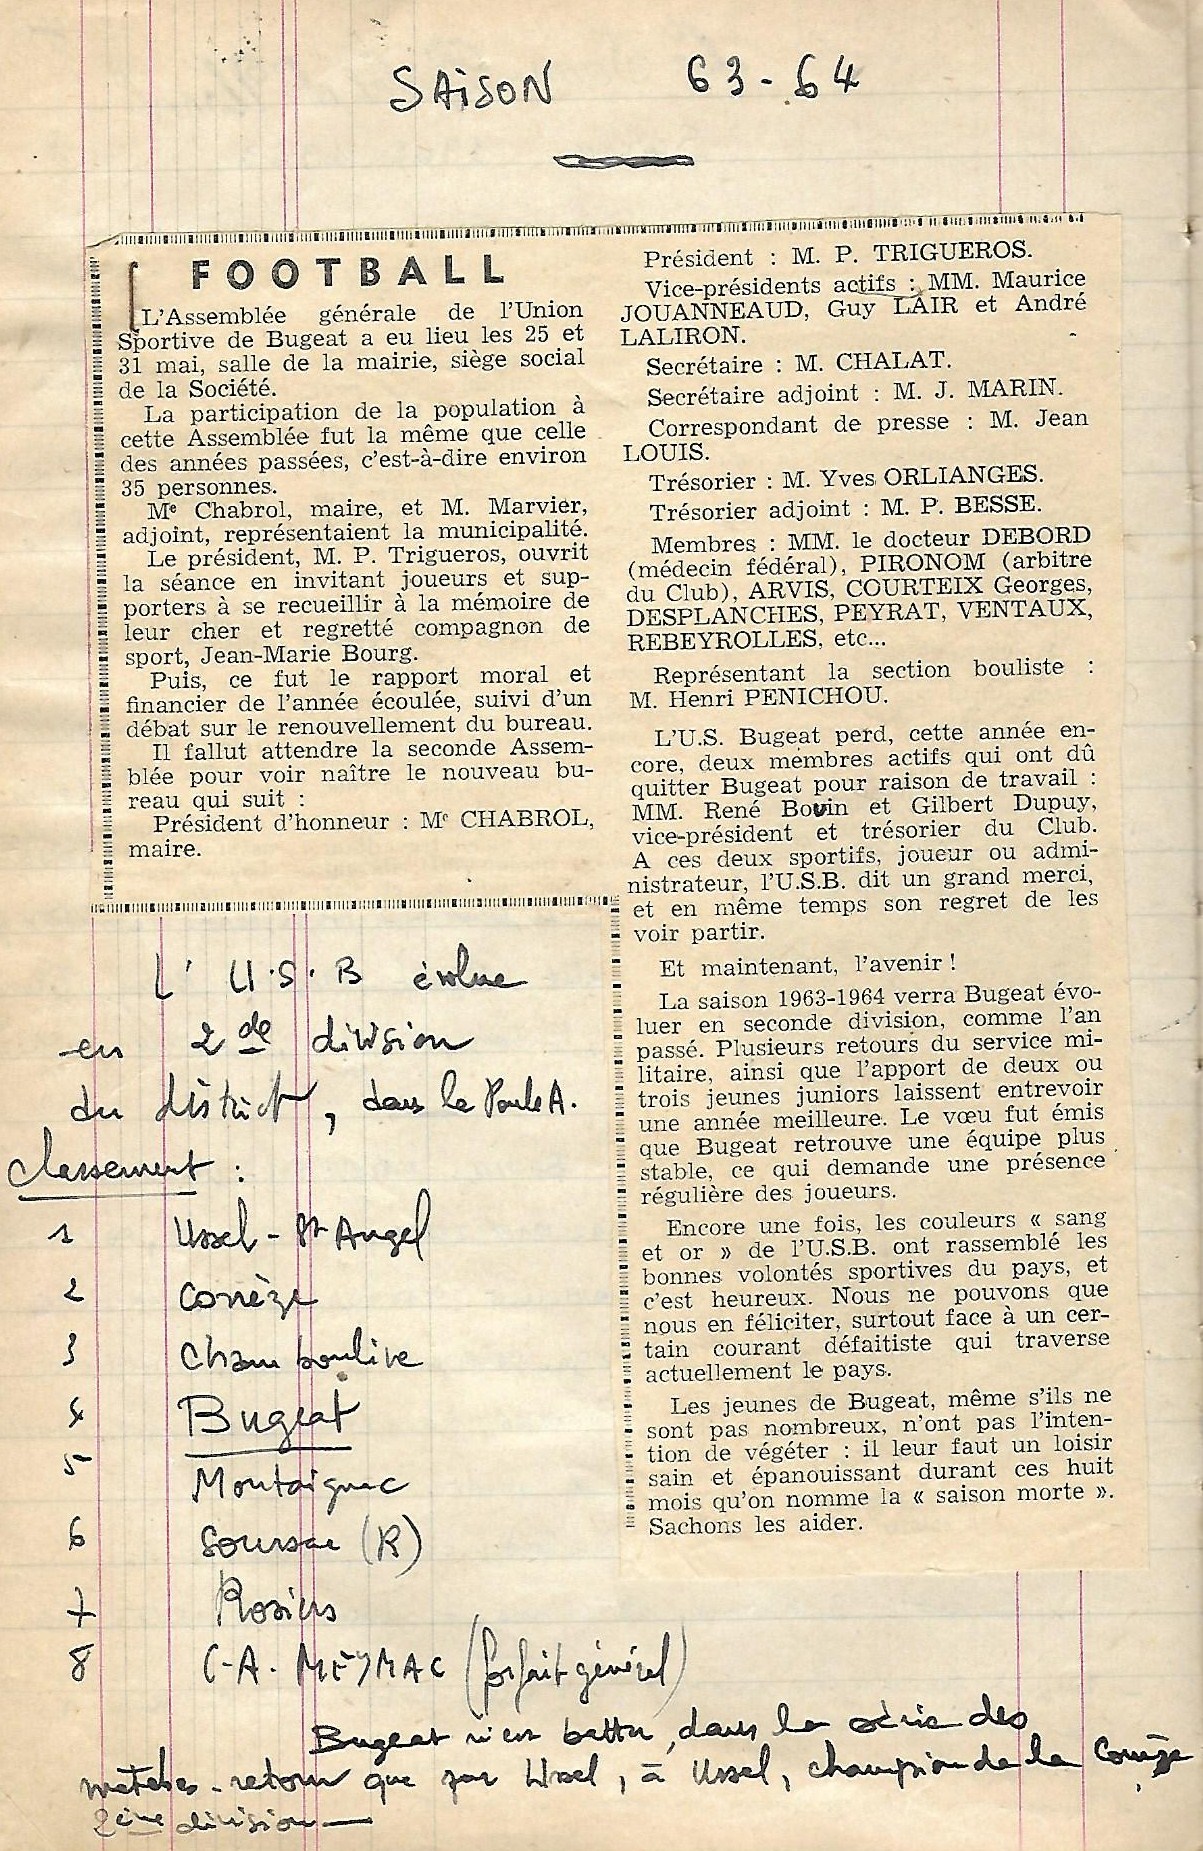 SAISON 63-64
FOOTBALL
L'Assemblée générale de l'Union
Sportive de Bugeat a eu lieu les 25 et
31 mai, salle de la mairie, siège social
de la Société.
La participation de la population à
cette Assemblée fut la même que celle
des années passées, c'est-à-dire environ
35 personnes.
Me Chabrol, maire, et M. Marvier,
adjoint, représentaient la municipalité.
Le président, M. P. Trigueros, ouvrit
la séance en invitant joueurs et sup-
porters à se recueillir à la mémoire de
leur cher et regretté compagnon de
sport, Jean-Marie Bourg.
Puis, ce fut le rapport moral et
financier de l'année écoulée, suivi d'un
débat sur le renouvellement du bureau.
Il fallut attendre la seconde Assem-
blée pour voir naître le nouveau bu-
reau qui suit :
Président d'honneur : Me CHABROL,
maire.
Président : M. P. TRIGUEROS.
Vice-présidents actifs : MM. Maurice
JOUANNEAUD, Guy LAIR et André
LALIRON.
Secrétaire : M. CHALAT.
Secrétaire adjoint : M. J. MARIN.
Correspondant de presse : M. Jean
LOUIS.
Trésorier : M. Yves ORLIANGES.
Trésorier adjoint : M. P. BESSE.
Membres : MM. le docteur DEBORD
(médecin fédéral), PIRONOM (arbitre
du Club), ARVIS, COURTEIX Georges,
DESPLANCHES, PEYRAT, VENTAUX,
REBEYROLLES, etc...
Représentant la section bouliste :
M. Henri PENICHOU.
L'U.S. Bugeat perd, cette année en-
core, deux membres actifs qui ont dû
quitter Bugeat pour raison de travail :
MM. René Bouin et Gilbert Dupuy,
vice-président et trésorier du Club.
A ces deux sportifs, joueur ou admi-
nistrateur, l'U.S.B. dit un grand merci,
et en même temps son regret de les
voir partir.
Et maintenant, l'avenir !
La saison 1963-1964 verra Bugeat évo-
luer en seconde division, comme l'an
passé. Plusieurs retours du service mi-
litaire, ainsi que l'apport de deux ou
trois jeunes juniors laissent entrevoir
une année meilleure. Le vœu fut émis
que Bugeat retrouve une équipe plus
stable, ce qui demande une présence
régulière des joueurs.
Encore une fois, les couleurs « sang
et or » de l'U.S.B. ont rassemblé les
bonnes volontés sportives du pays, et
c'est heureux. Nous ne pouvons que
nous en féliciter, surtout face à un cer-
tain courant défaitiste qui traverse
actuellement le pays.
Les jeunes de Bugeat, même s'ils ne
sont pas nombreux, n'ont pas l'inten-
tion de végéter : il leur faut un loisir
sain et épanouissant durant ces huit
mois qu'on nomme la « saison morte ».
Sachons les aider.
L'U.S.B évolue
en 2de division
du district, dans la Poule A.
Classement :
1 Ussel - St Angel
2 Corrèze
3 Chamboulive
4 Bugeat
5 Montaignac
6 Soursac (R)
7 Rosiers
8 C.A. MEYMAC (forfait général)
Bugeat n'est battu, dans la série des
matches-retour que par Ussel, à Ussel, champion de la Corrèze
2ème division —